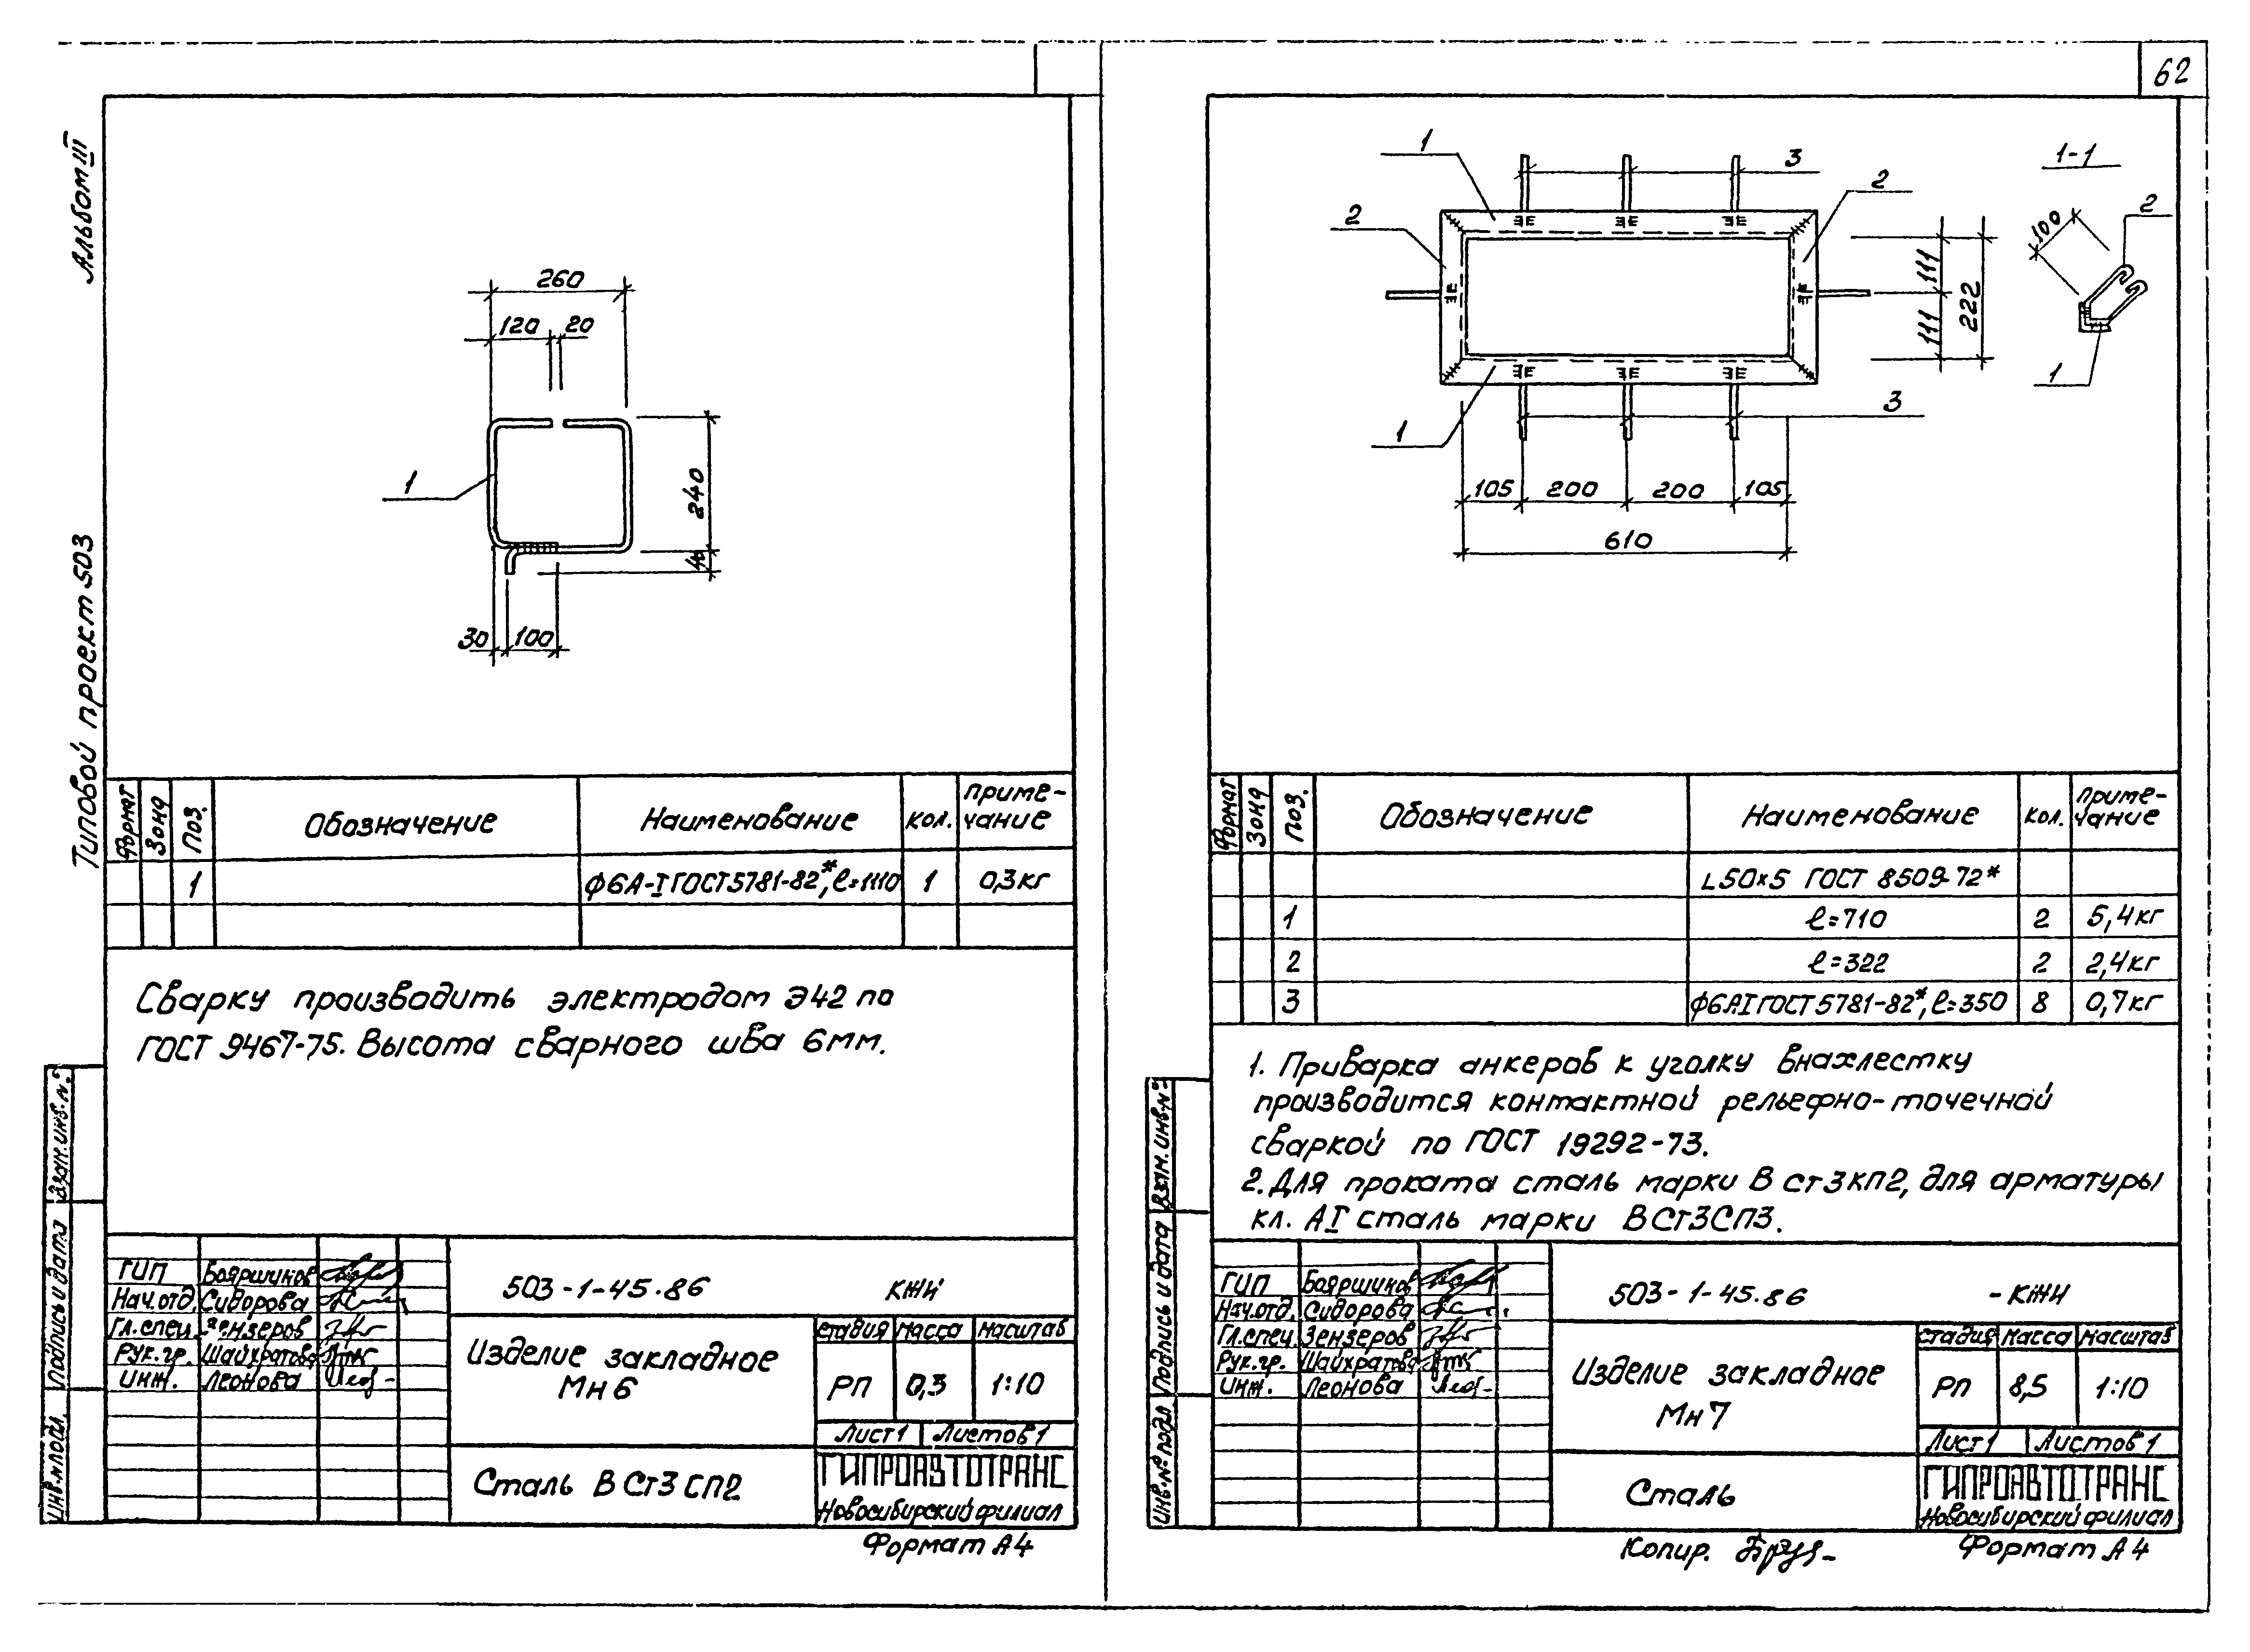 62
Альбом III
Типовой проект 503
260
120 20
1
240
40
30 100
Формат
Зона
Поз.
Обозначение
Наименование
Кол.
Приме-
чание
1 ф6А-I ГОСТ 5781-82*, ℓ=1110 1 0,3кг
Сварку производить электродом Э42 по
ГОСТ 9467-75. Высота сварного шва 6мм.
Взам. инв. №
Подпись и дата
Инв. № подл.
ГИП Бояршинов
Нач.отд. Сидорова
Гл.спец. Зензеров
Рук.гр. Шайхратова
Инж. Леонова
503-1-45.86 КЖИ
Изделие закладное
Мн6
Стадия Масса Масштаб
РП 0,3 1:10
Лист 1 Листов 1
Сталь В Ст3 сп2
ГИПРОАВТОТРАНС
Новосибирский филиал
Формат А4
1
3
2
2
1-1
100
2
1
111
111
222
3
1
105 200 200 105
610
Формат
Зона
Поз.
Обозначение
Наименование
Кол.
Приме-
чание
L50×5 ГОСТ 8509-72*
1 ℓ=710 2 5,4кг
2 ℓ=322 2 2,4кг
3 ф6АI ГОСТ 5781-82*, ℓ=350 8 0,7кг
1. Приварка анкеров к уголку внахлестку
производится контактной рельефно-точечной
сваркой по ГОСТ 19292-73.
2. Для проката сталь марки В ст3кп2, для арматуры
кл. АI сталь марки ВСт3сп3.
Взам. инв. №
Подпись и дата
Инв. № подл
ГИП Бояршинов
Нач.отд. Сидорова
Гл.спец. Зензеров
Рук.гр. Шайхратова
Инж. Леонова
503-1-45.86 -КЖИ
Изделие закладное
Мн7
Стадия Масса Масштаб
РП 8,5 1:10
Лист 1 Листов 1
Сталь
ГИПРОАВТОТРАНС
Новосибирский филиал
Копир.
Формат А4